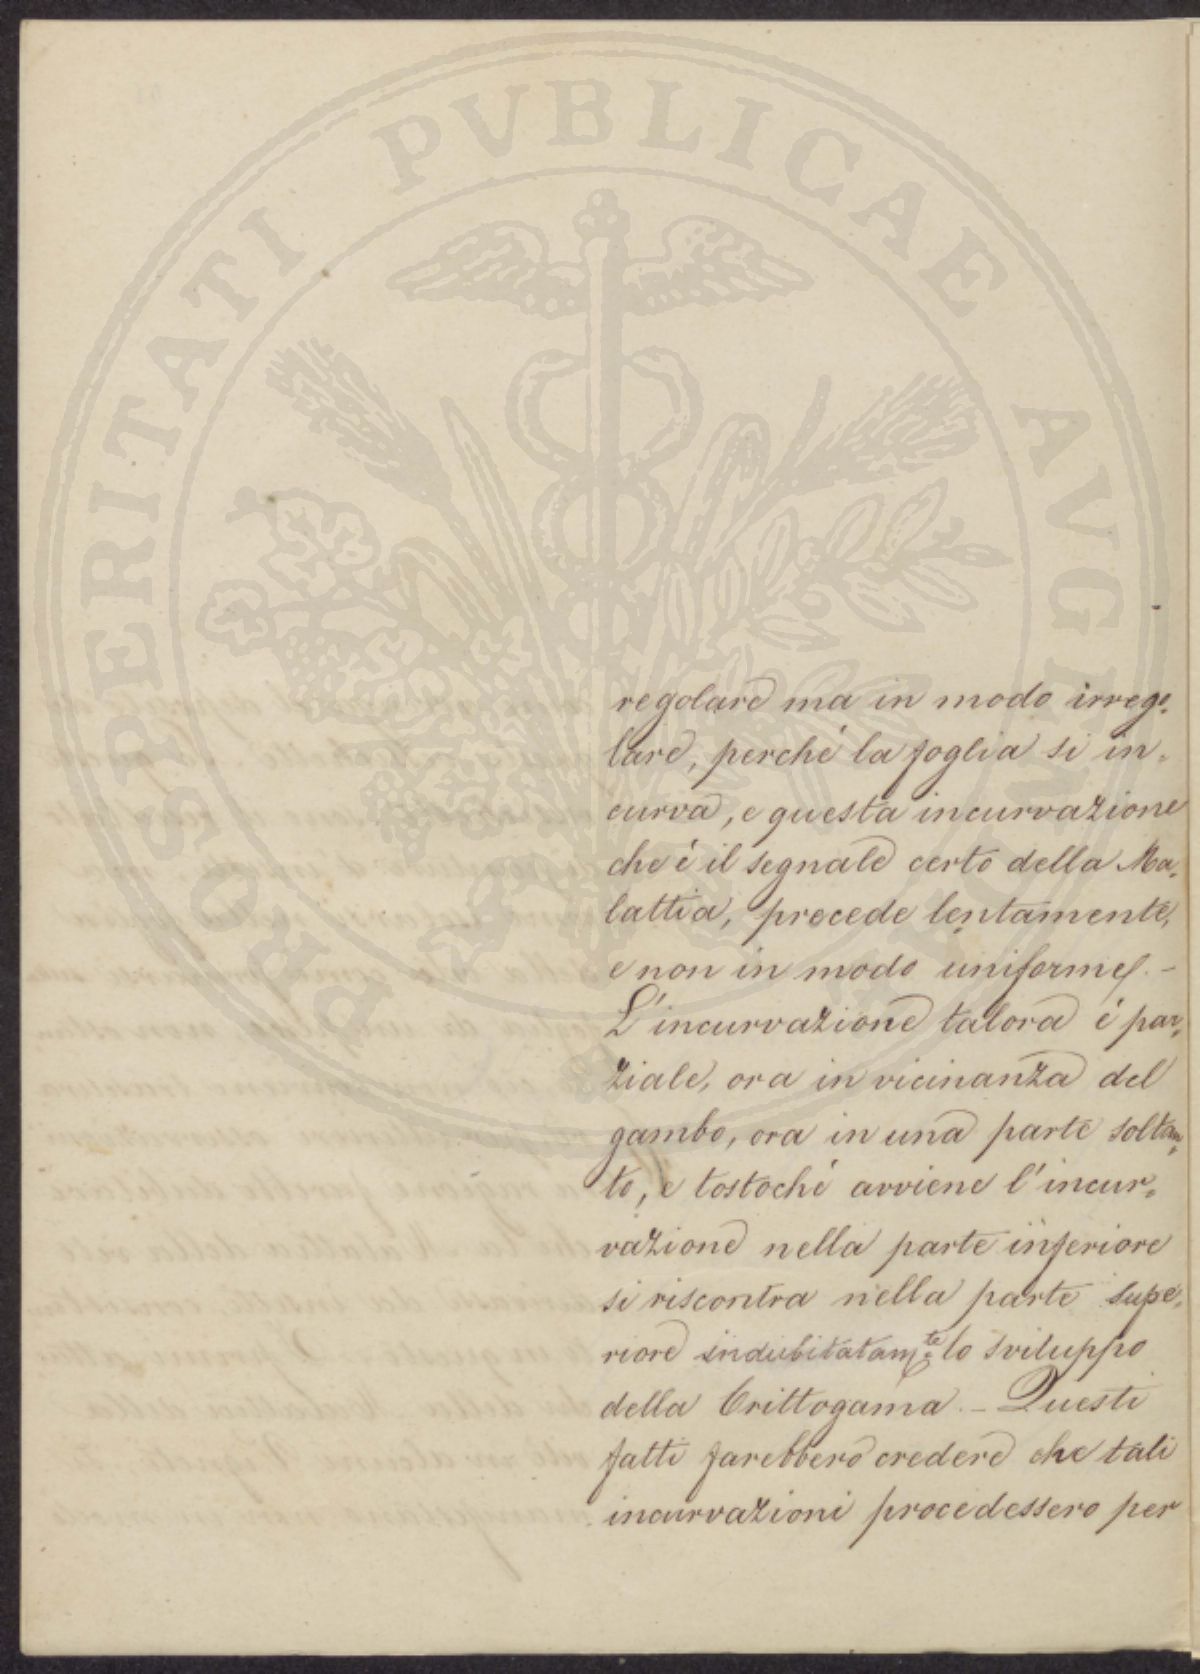 PROSPERITATI PVBLICAE AVGENDAE
regolare ma in modo irrego=
lare, perché la foglia si in=
curva, e questa incurvazione
che é il segnale certo della Ma=
lattia, procede lentamente,
e non in modo uniforme. -
L'incurvazione talora é par=
ziale, ora in vicinanza del
gambo, ora in una parte soltan=
to, e tostoché avviene l'incur=
vazione nella parte inferiore
si riscontra nella parte supe=
riore indubitatam.te lo sviluppo
della Crittogama. - Questi
fatti farebbero credere che tali
incurvazioni procedessero per